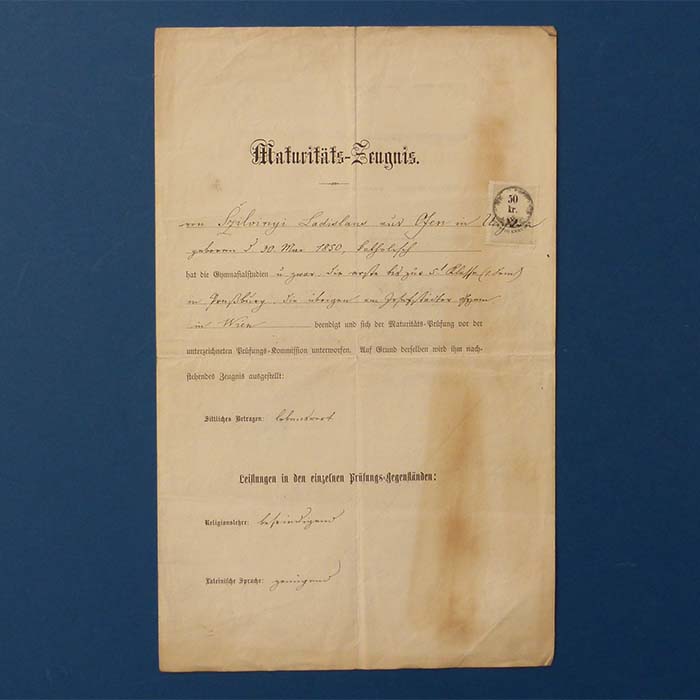 Maturitäts-Zeugnis.
50
kr.
von Szilvinyi Ladislaus aus Ofen in Ungarn
geboren d. 30. Mai 1850, katholisch
hat die Gymnasialstudien u. zwar die erste bis zur 5t Klasse (1. Sem)
in Preßburg die übrigen am Josefstädter Gymn.
in Wien beendigt und sich der Maturitäts-Prüfung vor der
unterzeichneten Prüfungs-Kommission unterworfen. Auf Grund derselben wird ihm nach-
stehendes Zeugnis ausgestellt:
Sittliches Betragen: lobenswert
Leistungen in den einzelnen Prüfungs-Gegenständen:
Religionslehre: befriedigend
Lateinische Sprache: genügend